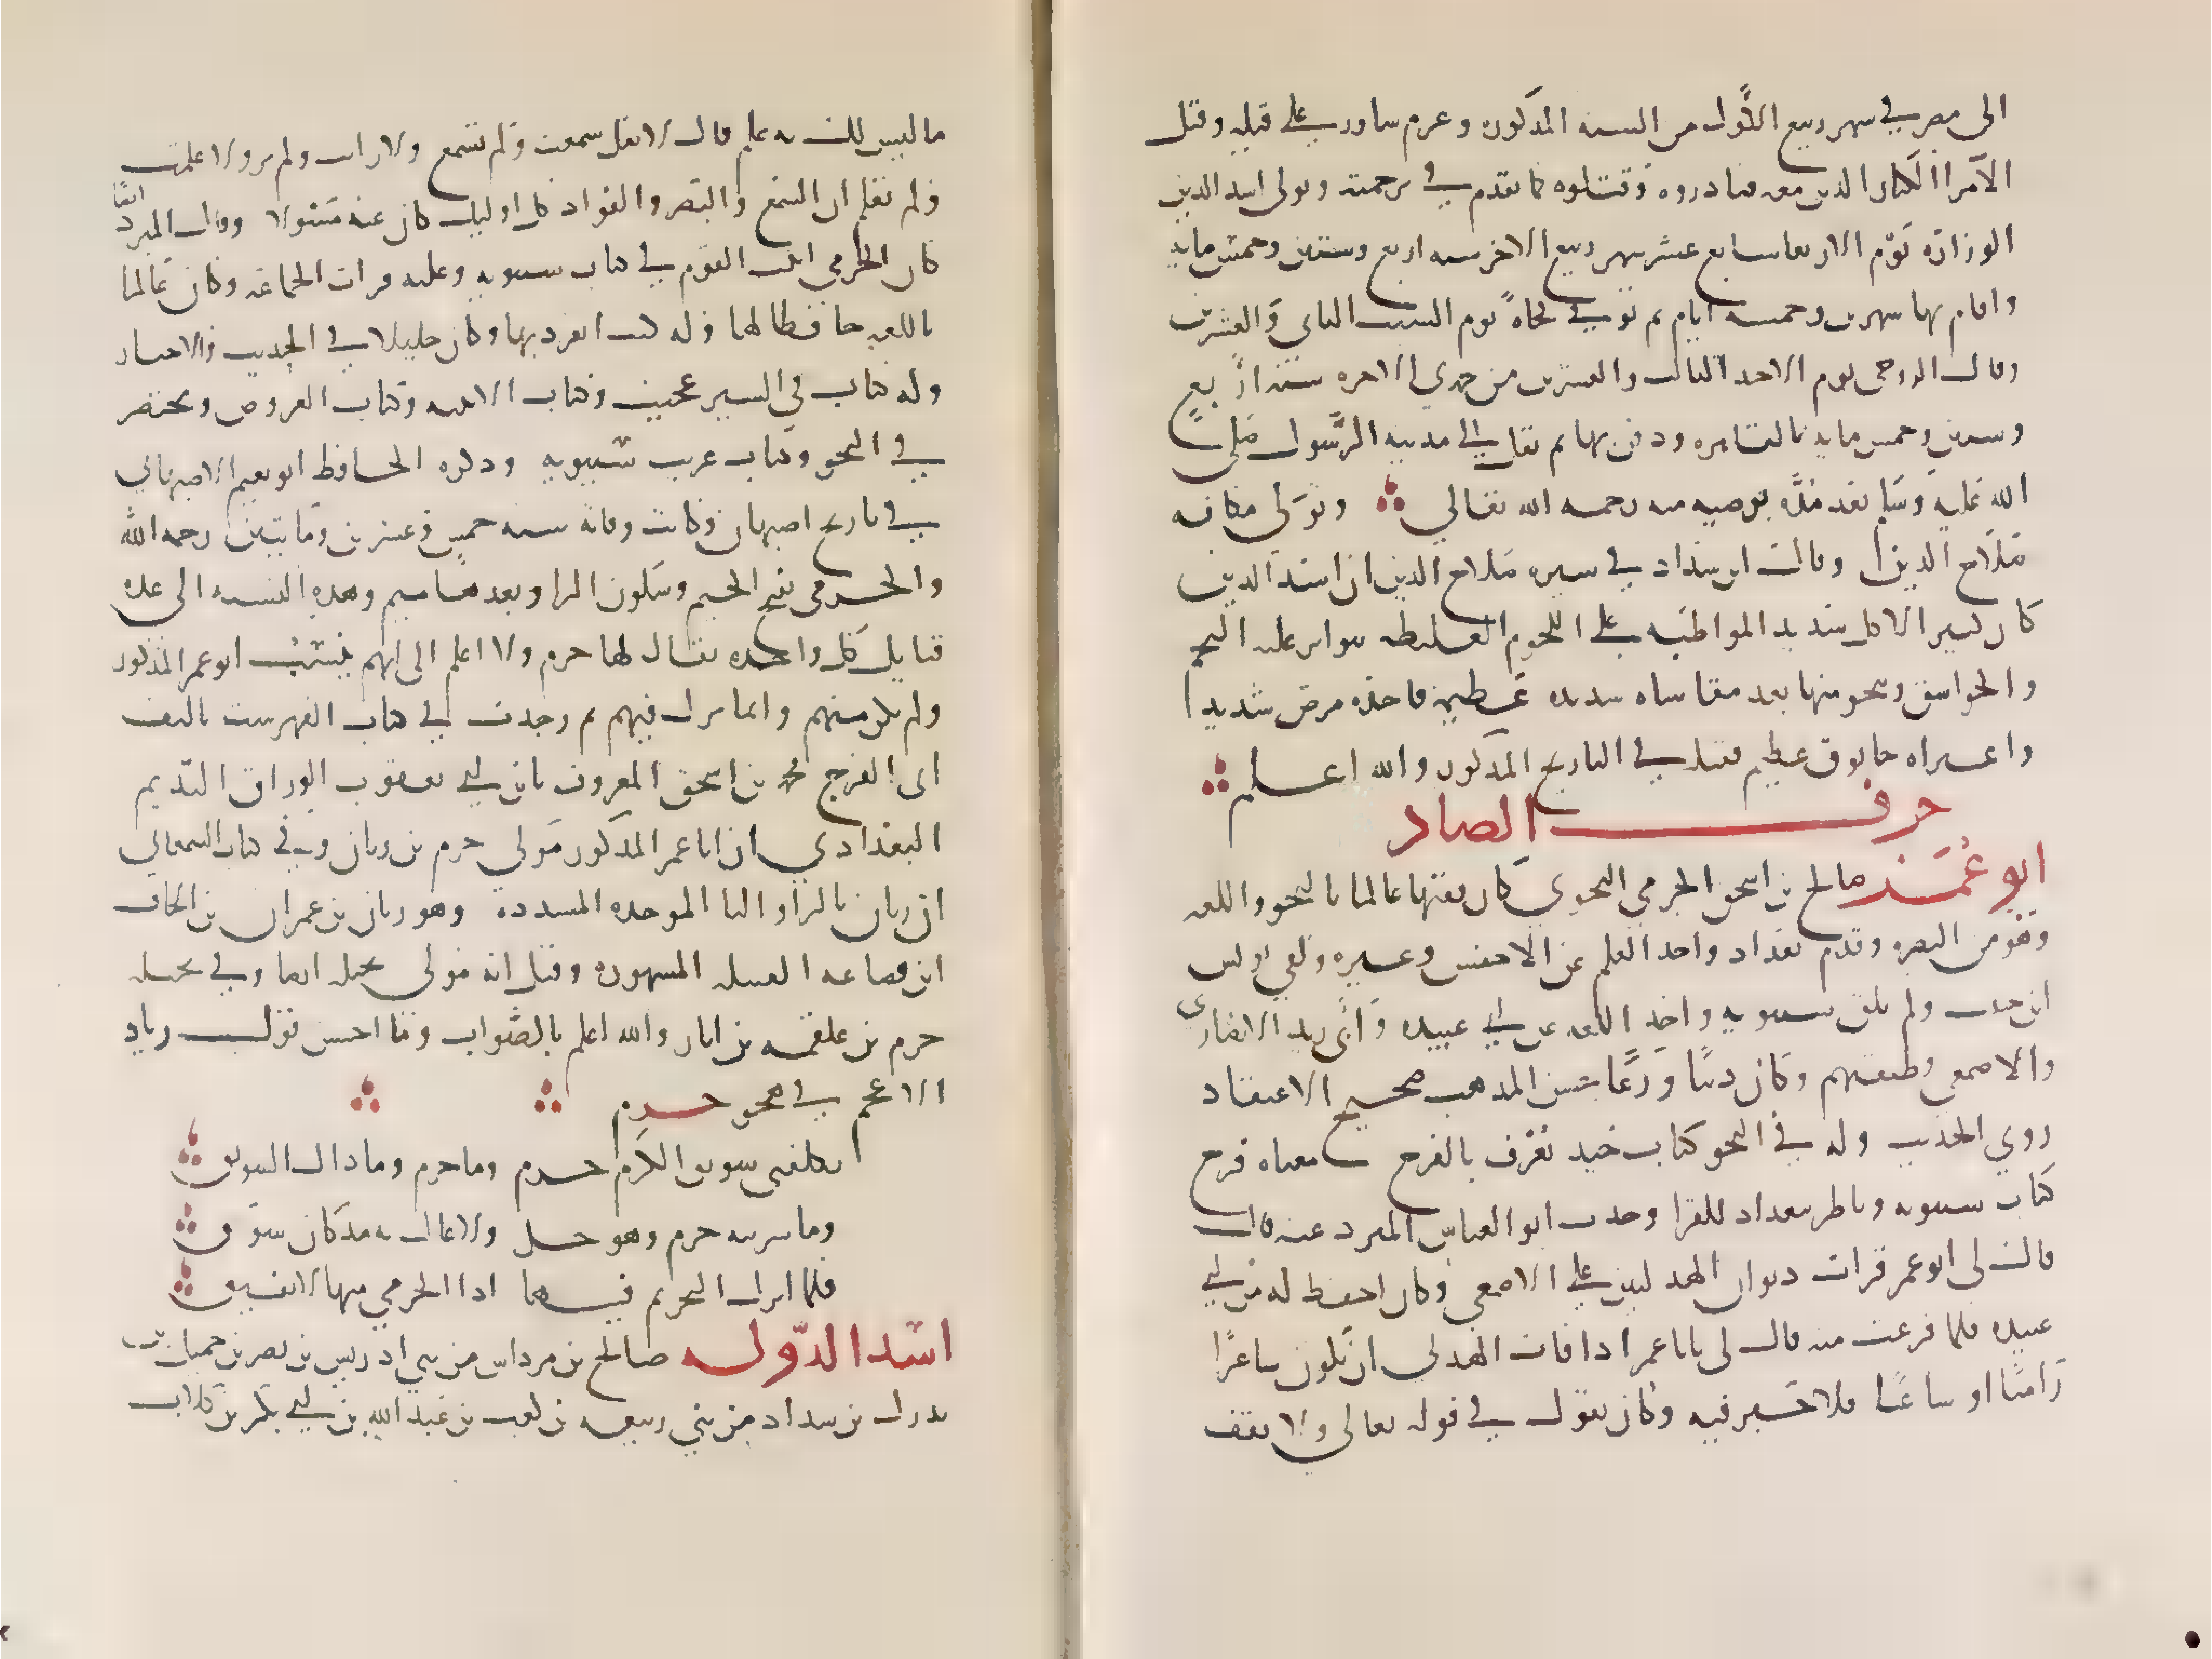 الى مصر في شهر ربيع الأول من السنه المذكوره وعزم شاور على قتله وقتل
الأمرا الكبار الذين معه فبادروه وقتلوه كما تقدم في ترجمته وتولى اسد الدين
الوزارة يوم الاربعا سابع عشر شهر ربيع الاخر سنه اربع وستين وخمس مايه
واقام بها شهرين وخمسه ايام ثم توفي فجاةً يوم السبت الثاني والعشرين
وقال الروحي يوم الاحد الثالث والعشرين من جمدي الاخره سنة اربع
وستين وخمس مايه بالقاهره ودفن بها ثم نقل الى مدينه الرسول صلى
الله عليه وسلم بعد مدة بوصيه منه رحمه الله تعالي وتولى مكانه
صلاح الدين وقال ابن شداد في سيره صلاح الدين ان اسد الدين
كان كثير الاكل شديد المواظبه على اللحوم الغليظه تتواتر عليه التخم
والخوانيق وينجو منها بعد مقاساه شده عظيمه فاخذه مرض شديد
واعتراه خانوق عظيم فقتله في التاريخ المذكور والله اعلم
حرف الصاد
ابو عمر صالح بن اسحق الجرمي النحوي كان فقيها عالما بالنحو واللغه
وهو من البصره وقدم بغداد واخذ العلم عن الاخفش وغيره ولقي يونس
ابن حبيب ولم يلق سيبويه واخذ اللغه عن ابي عبيده وأبي زيد الانصاري
والاصمعي وطبقتهم وكان دينا ورعًا حسن المذهب صحيح الاعتقاد
روي الحديث وله في النحو كتاب جيد يعرف بالفرخ معناه فرخ
كتاب سيبويه وناظر ببغداد للفرا وحدث ابو العباس المبرد عنه قال
قال لى ابو عمر قرات ديوان الهذليين على الاصمعي وكان احفظ له من ابي
عبيده فلما فرغت منه قال لى يابا عمر اذا فات الهذلي ان يكون شاعرًا
راميًا او ساعيا فلا خير فيه وكان يقول في قوله تعالى ولا تقف
ما ليس لك به علم قال لا تقل سمعت ولم تسمع ولا رايت ولم تر ولا علمت
ولم تعلم ان السمع والبصر والفواد كل اوليك كان عنه مسولا وقال المبرد ايضًا
كان الجرمي اثبت القوم في كتاب سيبويه وعليه قرات الجماعه وكان عالما
باللغه حافظا لها وله كتب انفرد بها وكان جليلا في الحديث والاخبار
وله كتاب في السير عجيب وكتاب الابنيه وكتاب العروض ومختصر
في النحو وكتاب غريب سيبويه وذكره الحافظ ابو نعيم الاصبهاني
في تاريخ اصبهان وكانت وفاته سنه خمس وعشرين ومايتين رحمه الله
والجرمي بفتح الجيم وسكون الرا وبعدها ميم وهذه النسبه الى عده
قبايل كل واحده يقال لها جرم ولا اعلم الى ايهم ينسب ابو عمر المذكور
ولم يكن منهم وانما نزل فيهم ثم وجدت في كتاب الفهرست تاليف
ابى الفرج محمد بن اسحق المعروف بابن ابي يعقوب الوراق النديم
البغدادي ان ابا عمر المذكور مولى جرم بن ربان وفي كتاب السمعاني
ان ربان بالرا والبا الموحده المشدده وهو ربان بن عمران بن الحاف
ابن قضاعه القبيله المشهوره وقيل انه مولى بجيله ايضا وفي بجيله
جرم بن علقمه بن انمار والله اعلم بالصواب وما احسن قول زياد
الاعجم في هجو جرم
تكلفني سويق الكرم جرم وما جرم وما ذاك السويق
وما شربته جرم وهو حل ولا غالت به مذ كان سوق
فلما انزل التحريم فيها اذا الجرمي منها لا يفيق
اسد الدوله صالح بن مرداس من بني ادريس بن نصر بن حميد بن
مدرك بن شداد من بني ربيعه بن كعب بن عبد الله بن ابي بكر بن كلاب